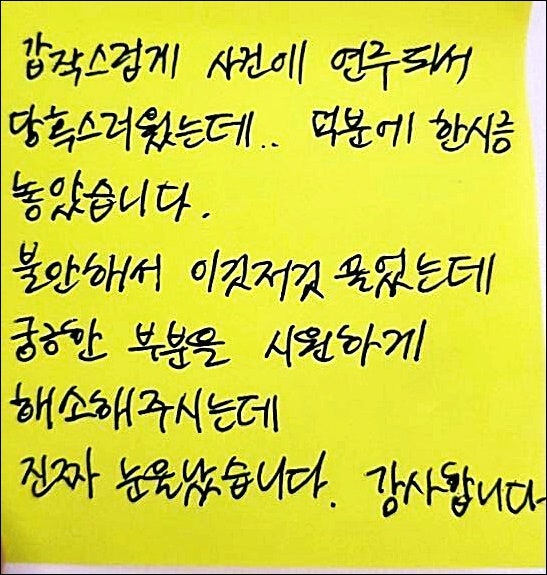 갑작스럽게 사건에 연루되서
당혹스러웠는데.. 덕분에 한시름
놓았습니다.
불안해서 이것저것 물었는데
궁금한 부분을 시원하게
해소해주시는데
진짜 눈물났습니다. 감사합니다